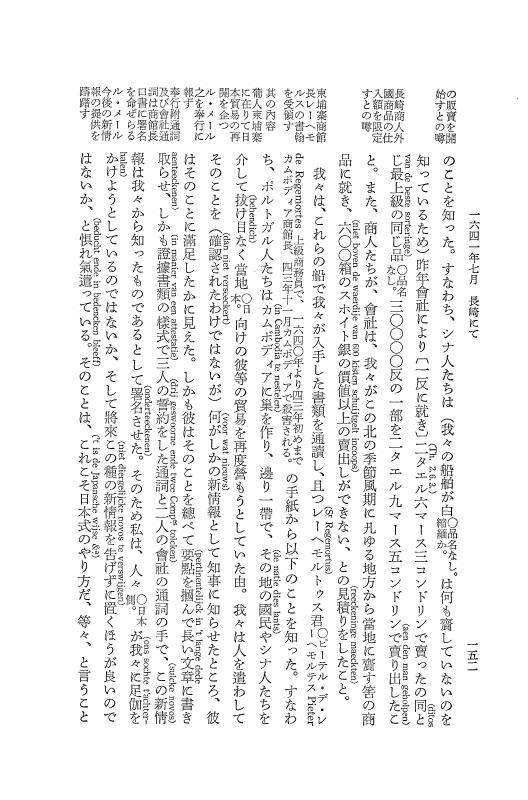 一六四一年七月　長崎にて
一五二
の販賣を開
始すとの噂
長崎商人外
國商品の仕
入額を限定
すとの噂
東埔寨商館
長レーヘモ
ルスの書翰
を受領す
其の内容
葡人柬埔寨
に在りて日
本貿易の再
開を企つ
ル・メール
之を奉行に
報ず
奉行附通詞
及び會社通
詞は商館長
口書に署名
を命ぜらる
ル・メール
今後の新情
報の提供を
躊躇す
のことを知った。すなわち、シナ人たちは（我々の船舶が白○品名なし。縮緬か。は何も齎していないのを
知っているため）昨年會社により〔一反に就き〕二タエル六マース三コンドリンで賣ったの同と
(Th. 2.6.3.)
(ditos van de beste sorteringe)
じ最上級の同じ品○品名なし。三〇〇〇反の一部を二タエル九マース五コンドリンで賣り出したこ
(aen den man geholpen)
と。また、商人たちが、會社は、我々がこの北の季節風期に凡ゆる地方から當地に齎す筈の商
品に就き、六〇〇箱のスホイト銀の價値以上の賣出しができない、との見積りをしたこと。
(niet boven de waerdije van 600 kisten schuijtgelt incoops)
(reeckeninge maeckten)
我々は、これらの船で我々が入手した書類を通讀し、且つレーヘモルトゥス君○ピーテル・デ・レーヘモルテス Pieter
(Sr Regemortus)
de Regemortes 上級商務員で、一六四〇年より四二年初めまでカムボディア商館長、四三年十一月カムボディアで殺害される。の手紙から以下のことを知った。すなわ
ち、ポルトガル人たちはカムボディアに巢を作り、邊り一帶で、その地の國民やシナ人たちを
(in Cambodia te nestelen)
(de natie dies lants)
介して拔け目なく當地○日本。向けの彼等の貿易を再度營もうとしていた由。我々は人を遣わして
(behendich)
そのことを（確認されたわけではないが）何がしかの新情報として知事に知らせたところ、彼
(dan niet verseeckert)
(voor wat nieuws)
はそのことに滿足したかに見えた。しかも彼はそのことを總べて要點を摑んで長い文章に書き
(pertinentelick in 't lange dede aenteeckenen)
取らせ、しかも證據書類の樣式で三人の誓約をした通詞と二人の會社の通詞の手で、この新情
(in manier van een attestatie)
(drij geswoorne ende twee Compes tolcken)
(sulcke novos)
報は我々から知ったものであるとして署名させた。そのため私は、人々○日本側。が我々に足伽を
(onderteeckenen)
(ons sochte t'achterhalen)
かけようとしているのではないか、そして將來この種の新情報を告げずに置くほうが良いので
(niet diergelijcke novos te verswrijgen)
はないか、と惧れ氣遣っている。そのことは、これこそ日本式のやり方だ、等々、と言うこと
(beducht ende in bedencken bleeff)
('t is de Japansche wijse &a)